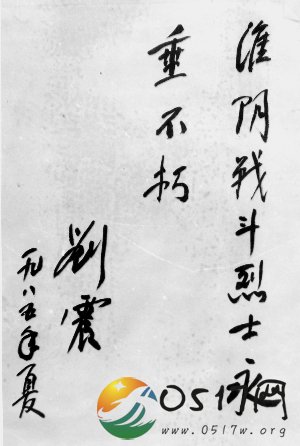 淮阴战斗烈士永
垂不朽
劉震
一九八五年夏
0517网
www.0517w.org